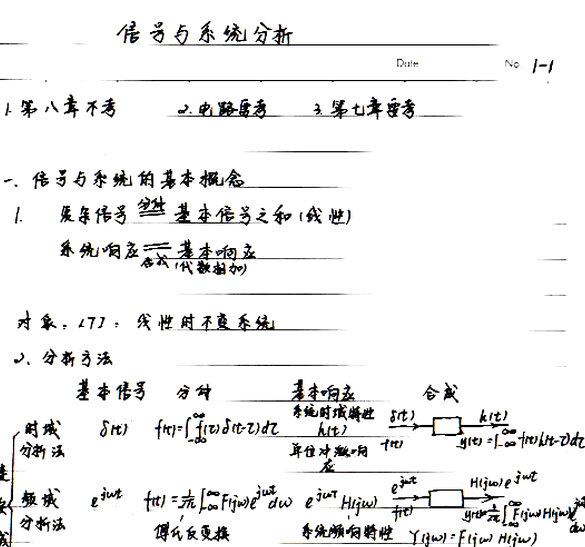 信号与系统分析
Date No. 1-1
1. 第八章不考 2. 电路要考 3. 第七章要考
一、信号与系统的基本概念
1. 复杂信号 分解 基本信号之和(线性)
系统响应 合成 基本响应
(代数相加)
对象:LTI:线性时不变系统
2. 分析方法
基本信号 分解 基本响应 合成
时域分析法 δ(t) f(t)=∫_{-∞}^{∞} f(τ)δ(t-τ)dτ 系统时域特性 h(t) 单位冲激响应 δ(t) h(t) f(t) y(t)=∫_{-∞}^{∞} f(τ)h(t-τ)dτ
频域分析法 e^{jωt} f(t)=1/2π ∫_{-∞}^{∞} F(jω)e^{jωt}dω 傅氏反变换 e^{jωt}H(jω) 系统频响特性 e^{jωt} H(jω)e^{jωt} f(t) y(t)=1/2π ∫_{-∞}^{∞} F(jω)H(jω)e^{jωt}dω
Y(jω)=F(jω)H(jω)